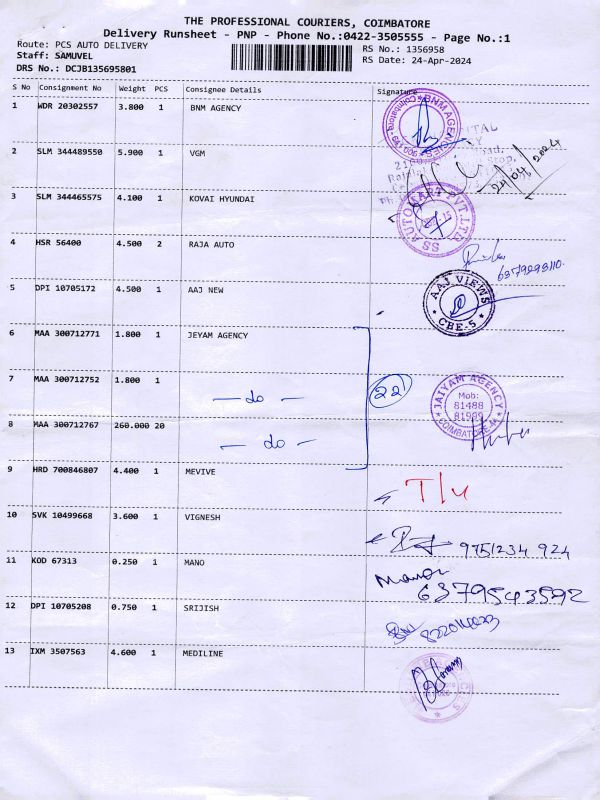 THE PROFESSIONAL COURIERS, COIMBATORE
Delivery Runsheet - PNP - Phone No.:0422-3505555 - Page No.:1
Route: PCS AUTO DELIVERY RS No.: 1356958
Staff: SAMUVEL RS Date: 24-Apr-2024
DRS No.: DCJB135695801
S No Consignment No Weight PCS Consignee Details Signature
1 WDR 20302557 3.800 1 BNM AGENCY
BNM AGENCIES
2 SLM 344489550 5.900 1 VGM
24/04/2024
3 SLM 344465575 4.100 1 KOVAI HYUNDAI
SS AUTOMART PVT. LTD.
4 HSR 56400 4.500 2 RAJA AUTO
5 DPI 10705172 4.500 1 AAJ NEW
AAJ VIEWS
★ CBE-5 ★
6 MAA 300712771 1.800 1 JEYAM AGENCY
7 MAA 300712752 1.800 1
— do — 22
JAIYAM AGENCY
Mob:
81488
81989
COIMBATORE
8 MAA 300712767 260.000 20
— do —
9 HRD 700846807 4.400 1 MEVIVE
T/u
10 SVK 10499668 3.600 1 VIGNESH
9751234 924
11 KOD 67313 0.250 1 MANO
Mano
6379543592
12 DPI 10705208 0.750 1 SRIJISH
13 IXM 3507563 4.600 1 MEDILINE